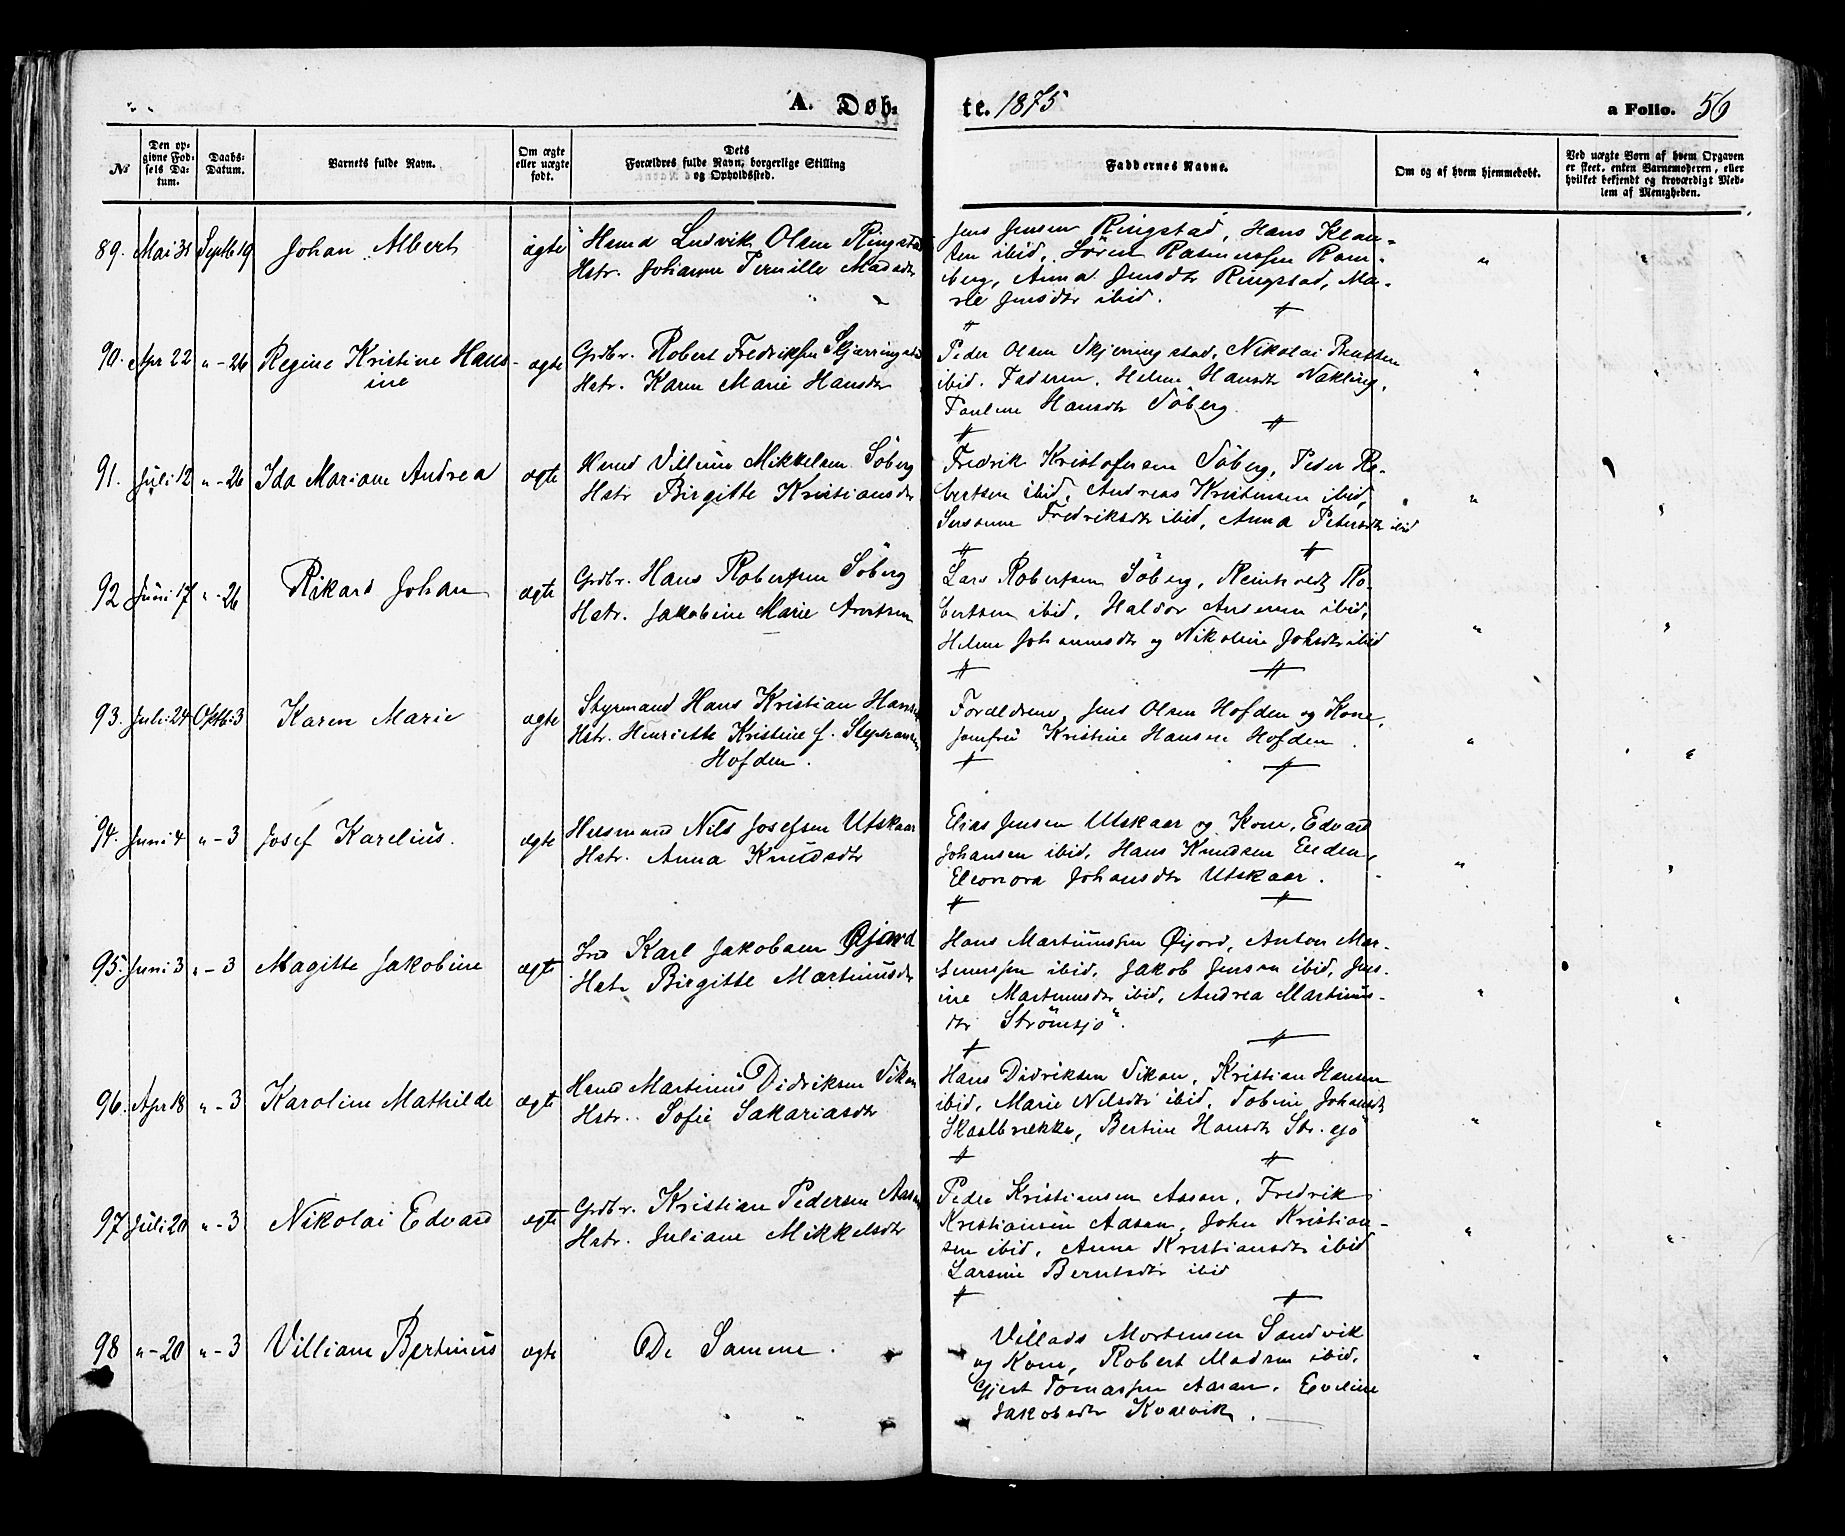 A. Døb-
te. 1875
a Folio. 56
№
Den op-
givne Fød-
sels Da-
tum.
Daabs-
Datum.
Barnets fulde Navn.
Om ægte
eller uægte
født.
Dets
Forældres fulde Navn, borgerlige Stilling
og Opholdssted.
Faddernes Navne.
Om og af hvem hjemmedøbt.
Ved uægte Børn af hvem Opgaven
er skeet, enten Barnemoderen, eller
hvilket bekjendt og troværdigt Med-
lem af Menigheden.
89. Mai 31 Septb 19 Johan Albert ægte Hsmd Ludvik Olsen Ringstad
Hstr. Johanne Pernille Madsdtr
Jens Jensen Ringstad, Hans Klau-
sen ibid, Sören Rasmussen Ram-
berg, Anna Jensdtr Ringstad, Ma-
rie Jensdtr ibid.
90. Apr 22 " - 26 Regine Kristine Hans-
ine
ægte Grdbr. Robert Fredriksen Skjærringstad
Hstr. Karen Marie Hansdtr
Peder Olsen Skjerringstad, Nikolai
ibid. Faderen. Helene Hansdtr Nakling,
Pauline Hansdtr Söberg.
91. Juli 12 " - 26 Ida Mariane Andrea ægte Hsmd Villum Mikkelsen Söberg
Hstr Birgitte Kristiansdtr
Fredrik Kristofersen Söberg, Peder Ro-
bertsen ibid, Andreas Kristensen ibid,
Susanne Fredriksdtr ibid, Anna Petersdtr ibid
92 Juni 17 " - 26 Rikard Johan ægte Grdbr. Hans Robertsen Söberg
Hstr. Jakobine Marie Arntsen
Lars Robertsen Söberg, Reinholdt Ro-
bertsen ibid, Haldor Andersen ibid,
Helene Johannesdtr og Nikoline Johsdtr ibid
93. Juli 24 Oktb: 3 Karen Marie ægte Styrmand Hans Kristian Hansen
Hstr. Henriette Kristine f.
Hofden.
Forældrene, Jens Olsen Hofden og Kone,
Jomfru Kristine Hansen Hofden.
94. Juni 4 " - 3 Josef Karelius. ægte Huusmand Nils Josefsen Utskaar
Hstr. Anna Knudsdtr
Elias Jensen Utskaar og Kone, Edvard
Johansen ibid, Hans Knudsen Eiden,
Eleonora Johansdtr Utskaar.
95. Juni 3 " - 3 Magitte Jakobine ægte Ind Karl Jakobsen Öjord
Hstr Birgitte Martinusdtr
Hans Martinussen Øijord, Anton Mar-
tinussen ibid, Jakob Jensen ibid, Jens-
ine Martinusdtr ibid, Andrea Martinus-
dtr Strömsjö.
96. Apr 18 " - 3 Karoline Mathilde ægte Hsmd Martinus Didriksen Vikan
Hstr. Sofie Sakariasdtr
Hans Didriksen Vikan, Kristian Hansen
ibid, Marie Nilsdtr ibid, Tobine Johansdtr
Skaalbrække, Bertine Hansdtr Str. sjö
97 Juli 20 " - 3 Nikolai Edvard ægte Grdbr. Kristian Pedersen Aasan
Hstr. Juliane Mikkelsdtr
Peder Kristiansen Aasan, Fredrik
Kristiansen Aasan, John Kristian-
sen ibid, Anne Kristiansdtr ibid
Larsine Berntsdtr ibid
98 " - 20 " - 3 Villiam Bertinius ægte De Samme.
Villads Mortensen Sandvik
og Kone, Robert Madsen ibid,
Gjert Tomassen Aasan, Eveline
Jakobsdtr Kvalvik.